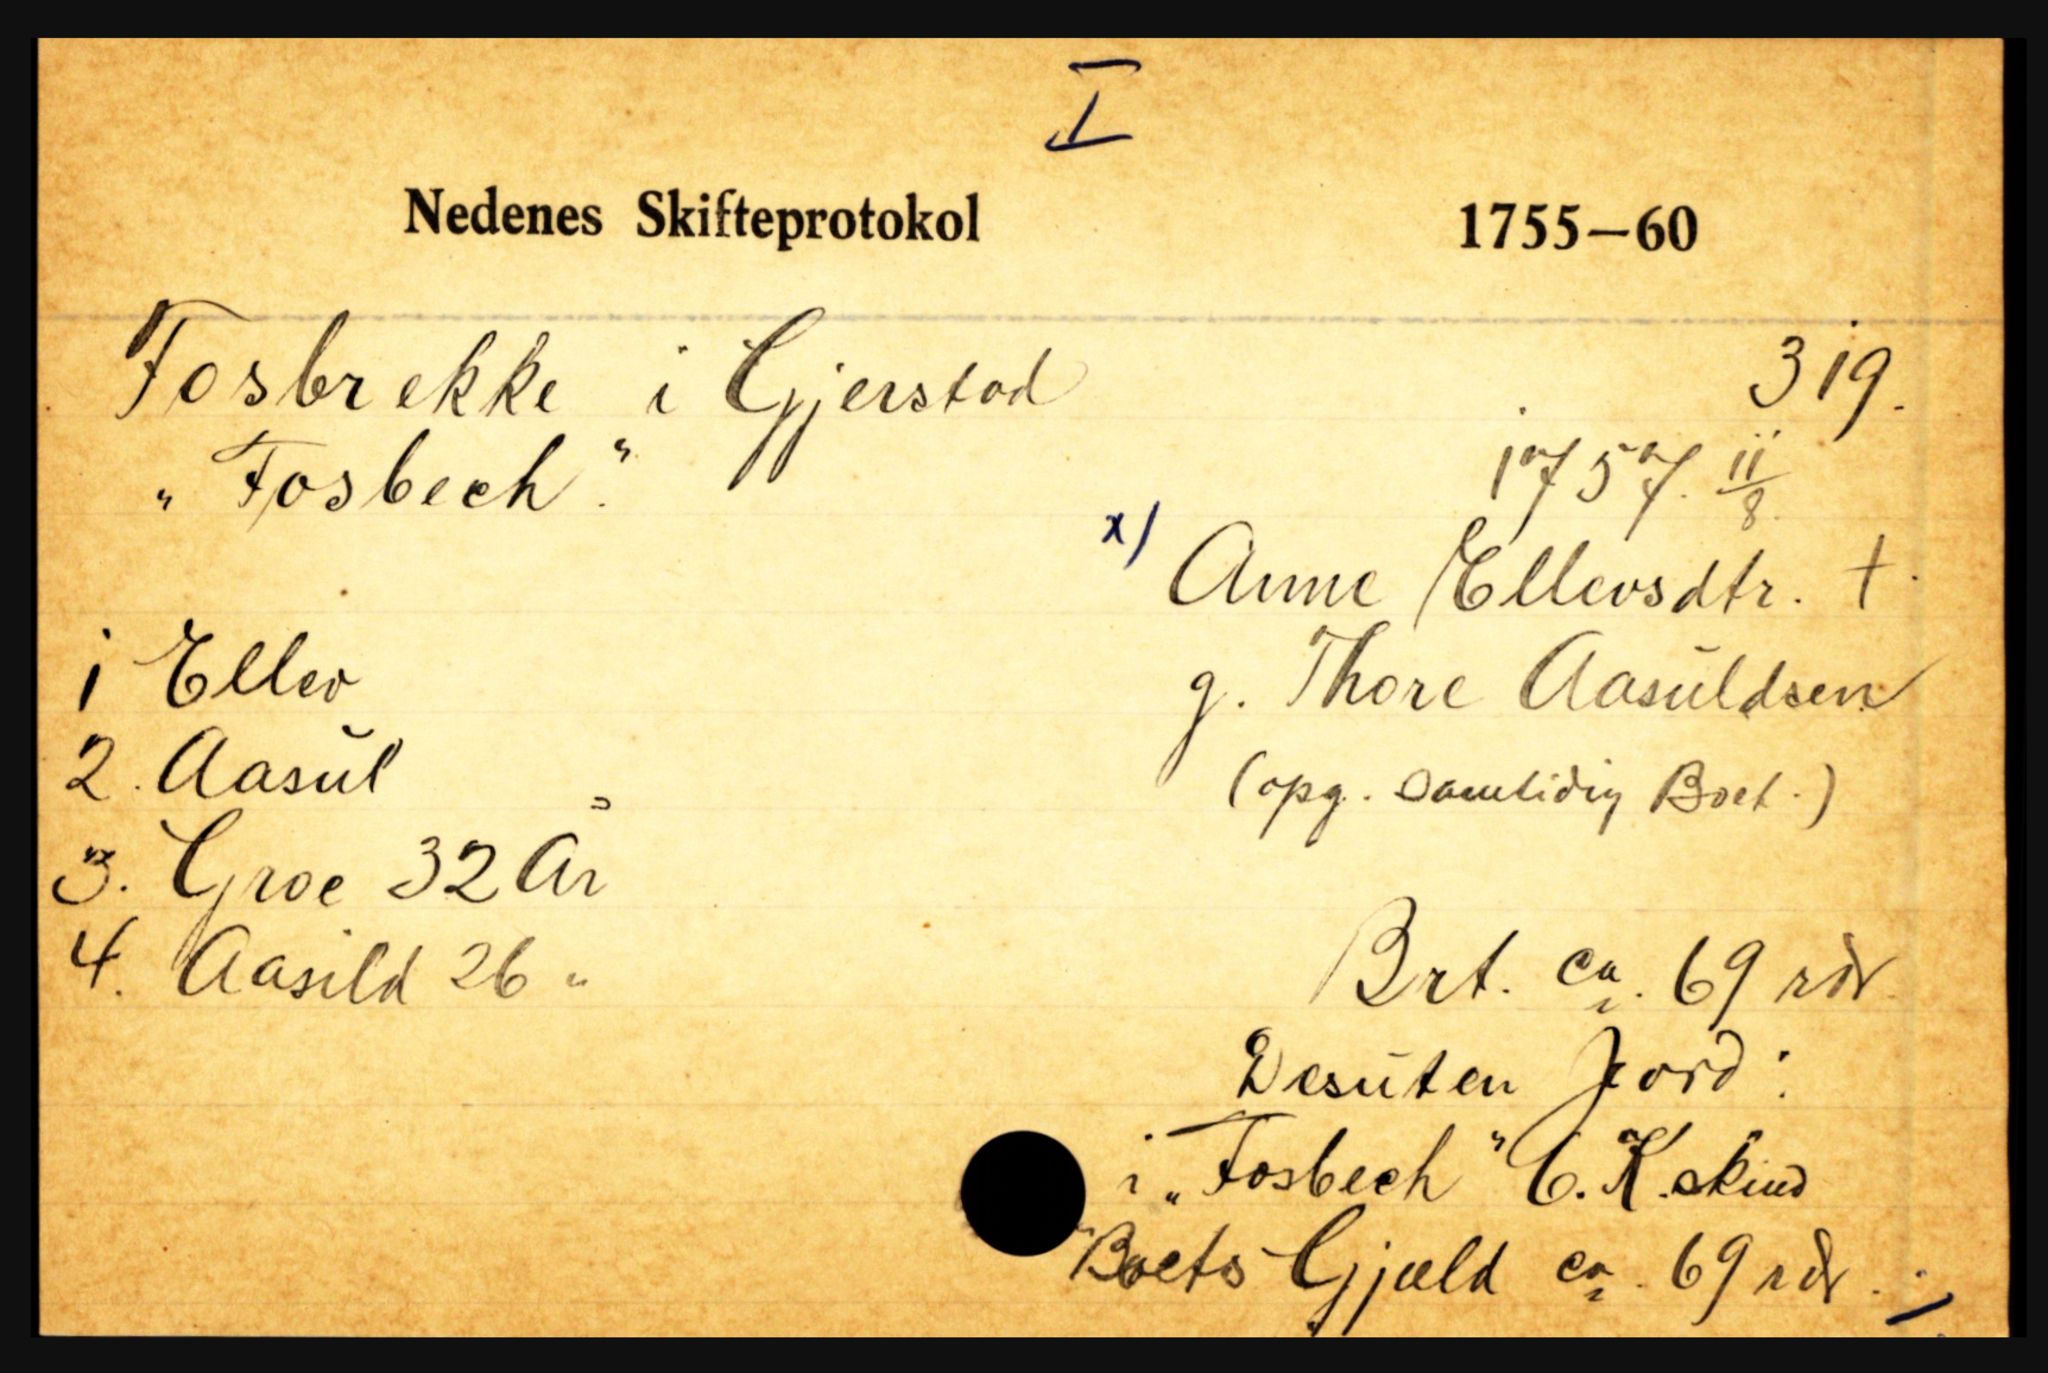 I
Nedenes Skifteprotokol 1755—60
Fosbrekke i Gjerstad 319.
„Fosbech". 1757. 11/8
x) Anne Ellevsdtr. †.
1 Ellev g. Thore Aasuldsen
2. Aasul (opg. samtidig Boet.)
3. Groe 32 År
4. Aasild 26 " Brt. ca. 69 rdr
Desuten Jord:
i „Fosbech" C. K. skind
Boets Gjæld ca. 69 rdr.